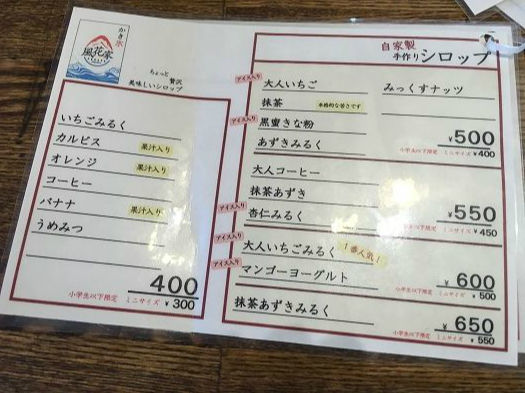 かき氷
風花家
ちょっと贅沢
美味しいシロップ
いちごみるく
カルピス 果汁入り
オレンジ
コーヒー
バナナ 果汁入り
うめみつ
400
小学生以下限定 ミニサイズ ¥300
自家製
手作りシロップ
アイス入り
大人いちご
みっくすナッツ
抹茶 本格的な苦さです
アイス入り
黒蜜きな粉
あずきみるく
¥500
小学生以下限定 ミニサイズ ¥400
大人コーヒー
抹茶あずき
アイス入り
杏仁みるく
¥550
小学生以下限定 ミニサイズ ¥450
アイス入り
大人いちごみるく 1番人気!
アイス入り
マンゴーヨーグルト
¥600
小学生以下限定 ミニサイズ ¥500
抹茶あずきみるく
¥650
小学生以下限定 ミニサイズ ¥550